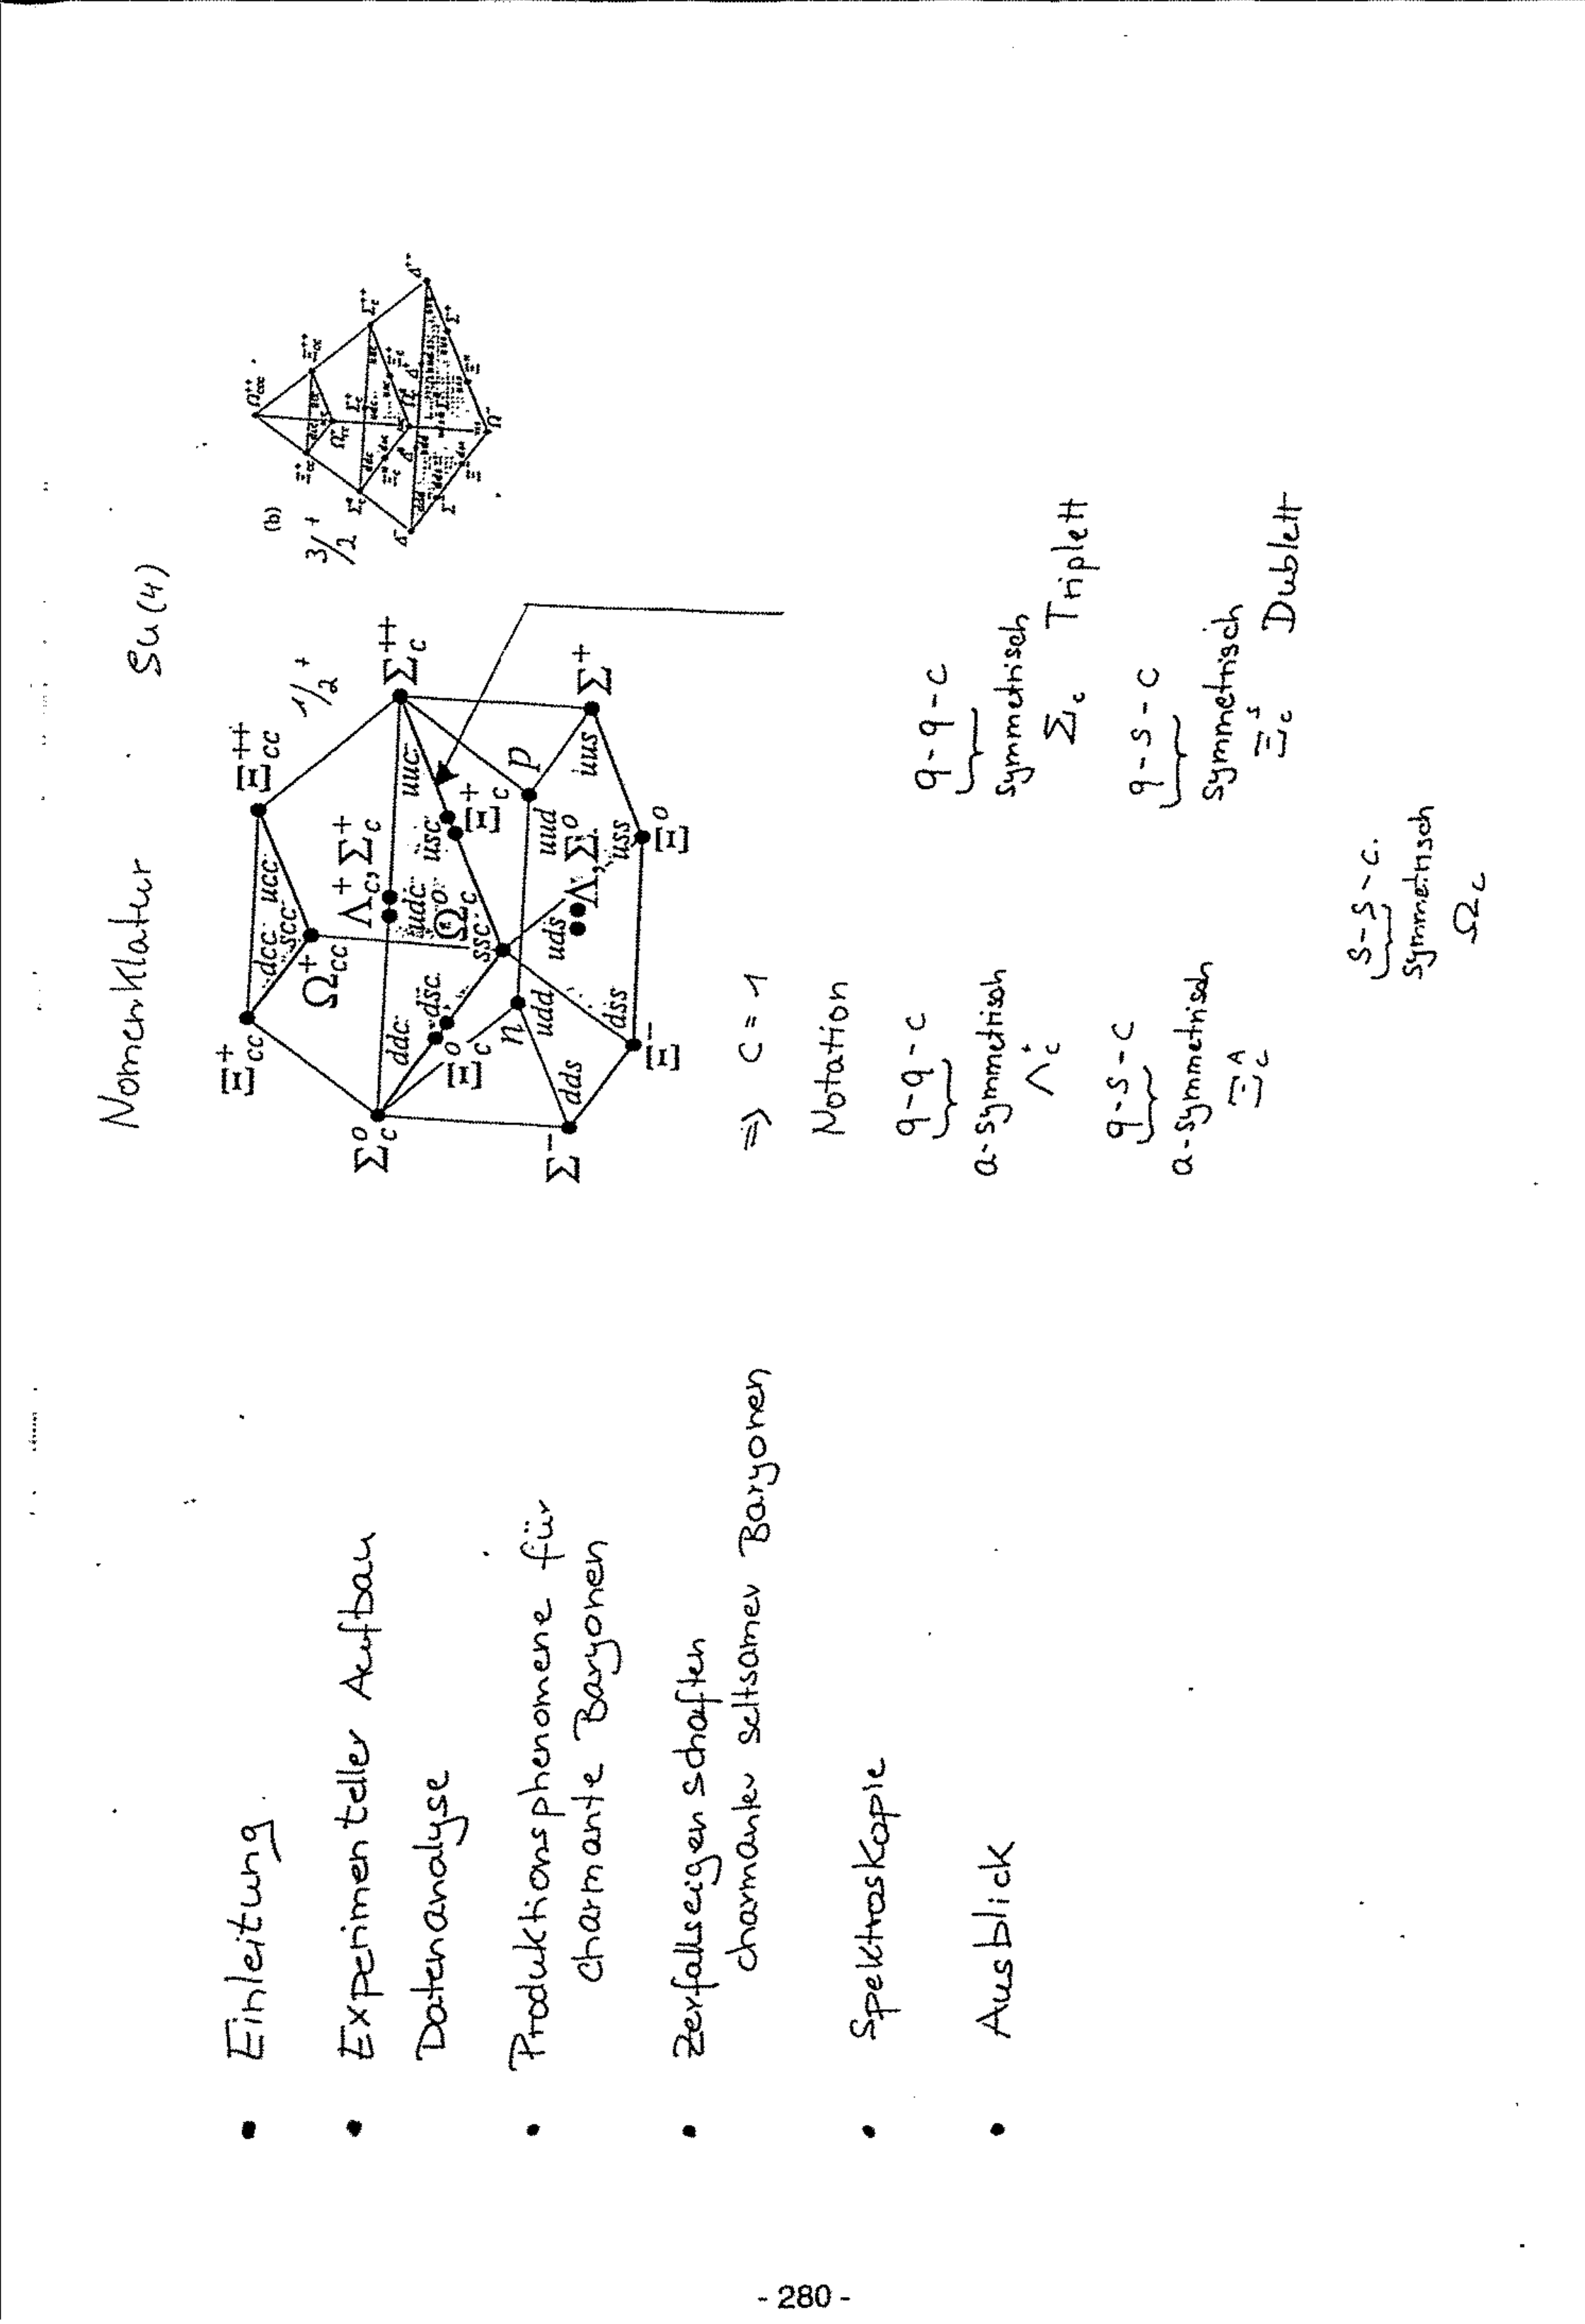 • Einleitung
• Experimenteller Aufbau
Datenanalyse
• Produktionsphenomene für
charmante Baryonen
• Zerfallseigenschaften
charmanter seltsamer Baryonen
• Spektroskopie
• Ausblick
Nomenklatur SU(4)
1/2 +
Ξ⁺cc Ξ⁺⁺cc
dcc ucc
scc
Ω⁺cc
Λ⁺c, Σ⁺c
Σ⁰c Σ⁺⁺c
ddc udc uuc
dsc usc
Ξ⁰c Ω⁰c Ξ⁺c
ssc
n p
udd uud
Σ⁻ Σ⁺
dds uds Λ, Σ⁰ uus
dss uss
Ξ⁻ Ξ⁰
(b)
3/2 +
Ω⁺⁺ccc
Ξ⁺cc Ξ⁺⁺cc
Σ⁺c Σ⁺⁺c
ddc
Δ⁺⁺
ddd
Σ⁺
Ω⁻
⇒ C = 1
Notation
q - q - c q - q - c
a-symmetrisch symmetrisch
Λ⁺c Σc Triplett
q - s - c q - s - c
a-symmetrisch symmetrisch
Ξ^A c Ξ^S c Dublett
s - s - c.
symmetrisch
Ωc
- 280 -